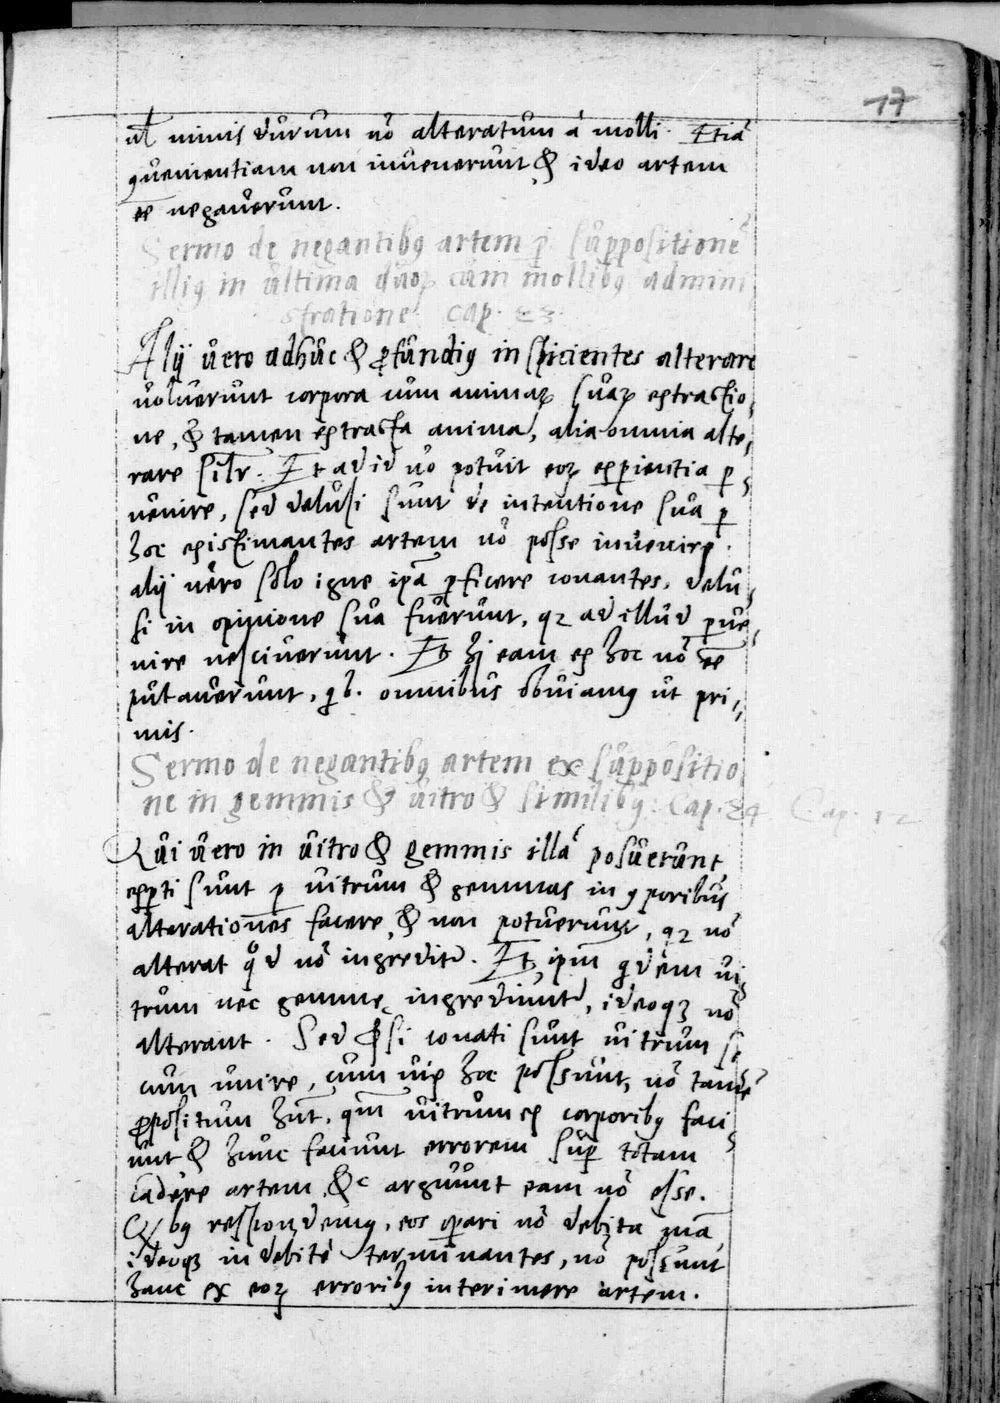 17
ul minus durum nō alteratum á molli. Etiā
ꝯuenientiam non inuenerunt & ideo artem
ēe negauerunt.
Sermo de negantibꝰ artem ꝑ suppositionē
illiꝰ in ultima duoꝝ cum mollibꝰ admini
stratione Cap. 23.
Alij uero adhuc & ꝓfundiꝰ inspicientes alterare
uoluerunt corpora cum animaꝝ suaꝝ extractio,
ne, & tamen extracta anima, alia omnia alte,
rare silr. Et ad id nō potuit eoꝝ exꝑientia ꝑ,
uenire, sed delusi sunt de intentione sua ꝑ
hoc existimantes artem nō posse inuenire.
alij uero solo igne ipā ꝑficere conantes, delu,
si in opinione sua fuerunt, qꝫ ad illud ꝑue,
nire nesciuerunt. Et hj eam ex hoc nō ēe
putauerunt, qb. omnibus obuiamꝰ ut pri,,
mis.
Sermo de negantibꝰ artem ex suppositio
ne in gemmis & uitro & similibꝰ. Cap. 24 Cap. 12
Qui uero in uitro & gemmis illā posuerunt
exꝑti sunt ꝑ uitrum & gemmas in ꝯporibus
alterationes facere, & non potuerunt, qꝫ nō
alterat qd nō ingredit~. Et ipm̄ qdem ui,
trum nec gemmę ingrediunt~, ideoqꝫ nō
alterant. Sed & si conati sunt uitrum se
cum unire, cum uix hoc possunt, nō tamē
ꝓpositum hūt, qm̄ uitrum ex corporibꝰ faci
unt & hunc faciunt errorem suꝑ totam
cadere artem, &c arguunt eam nō esse.
Qbꝰ respondemꝰ, eos oꝑari nō debita mā,
ideoqꝫ indebitè terminantes, nō possunt
hanc ex eoꝝ erroribꝰ interimere artem.